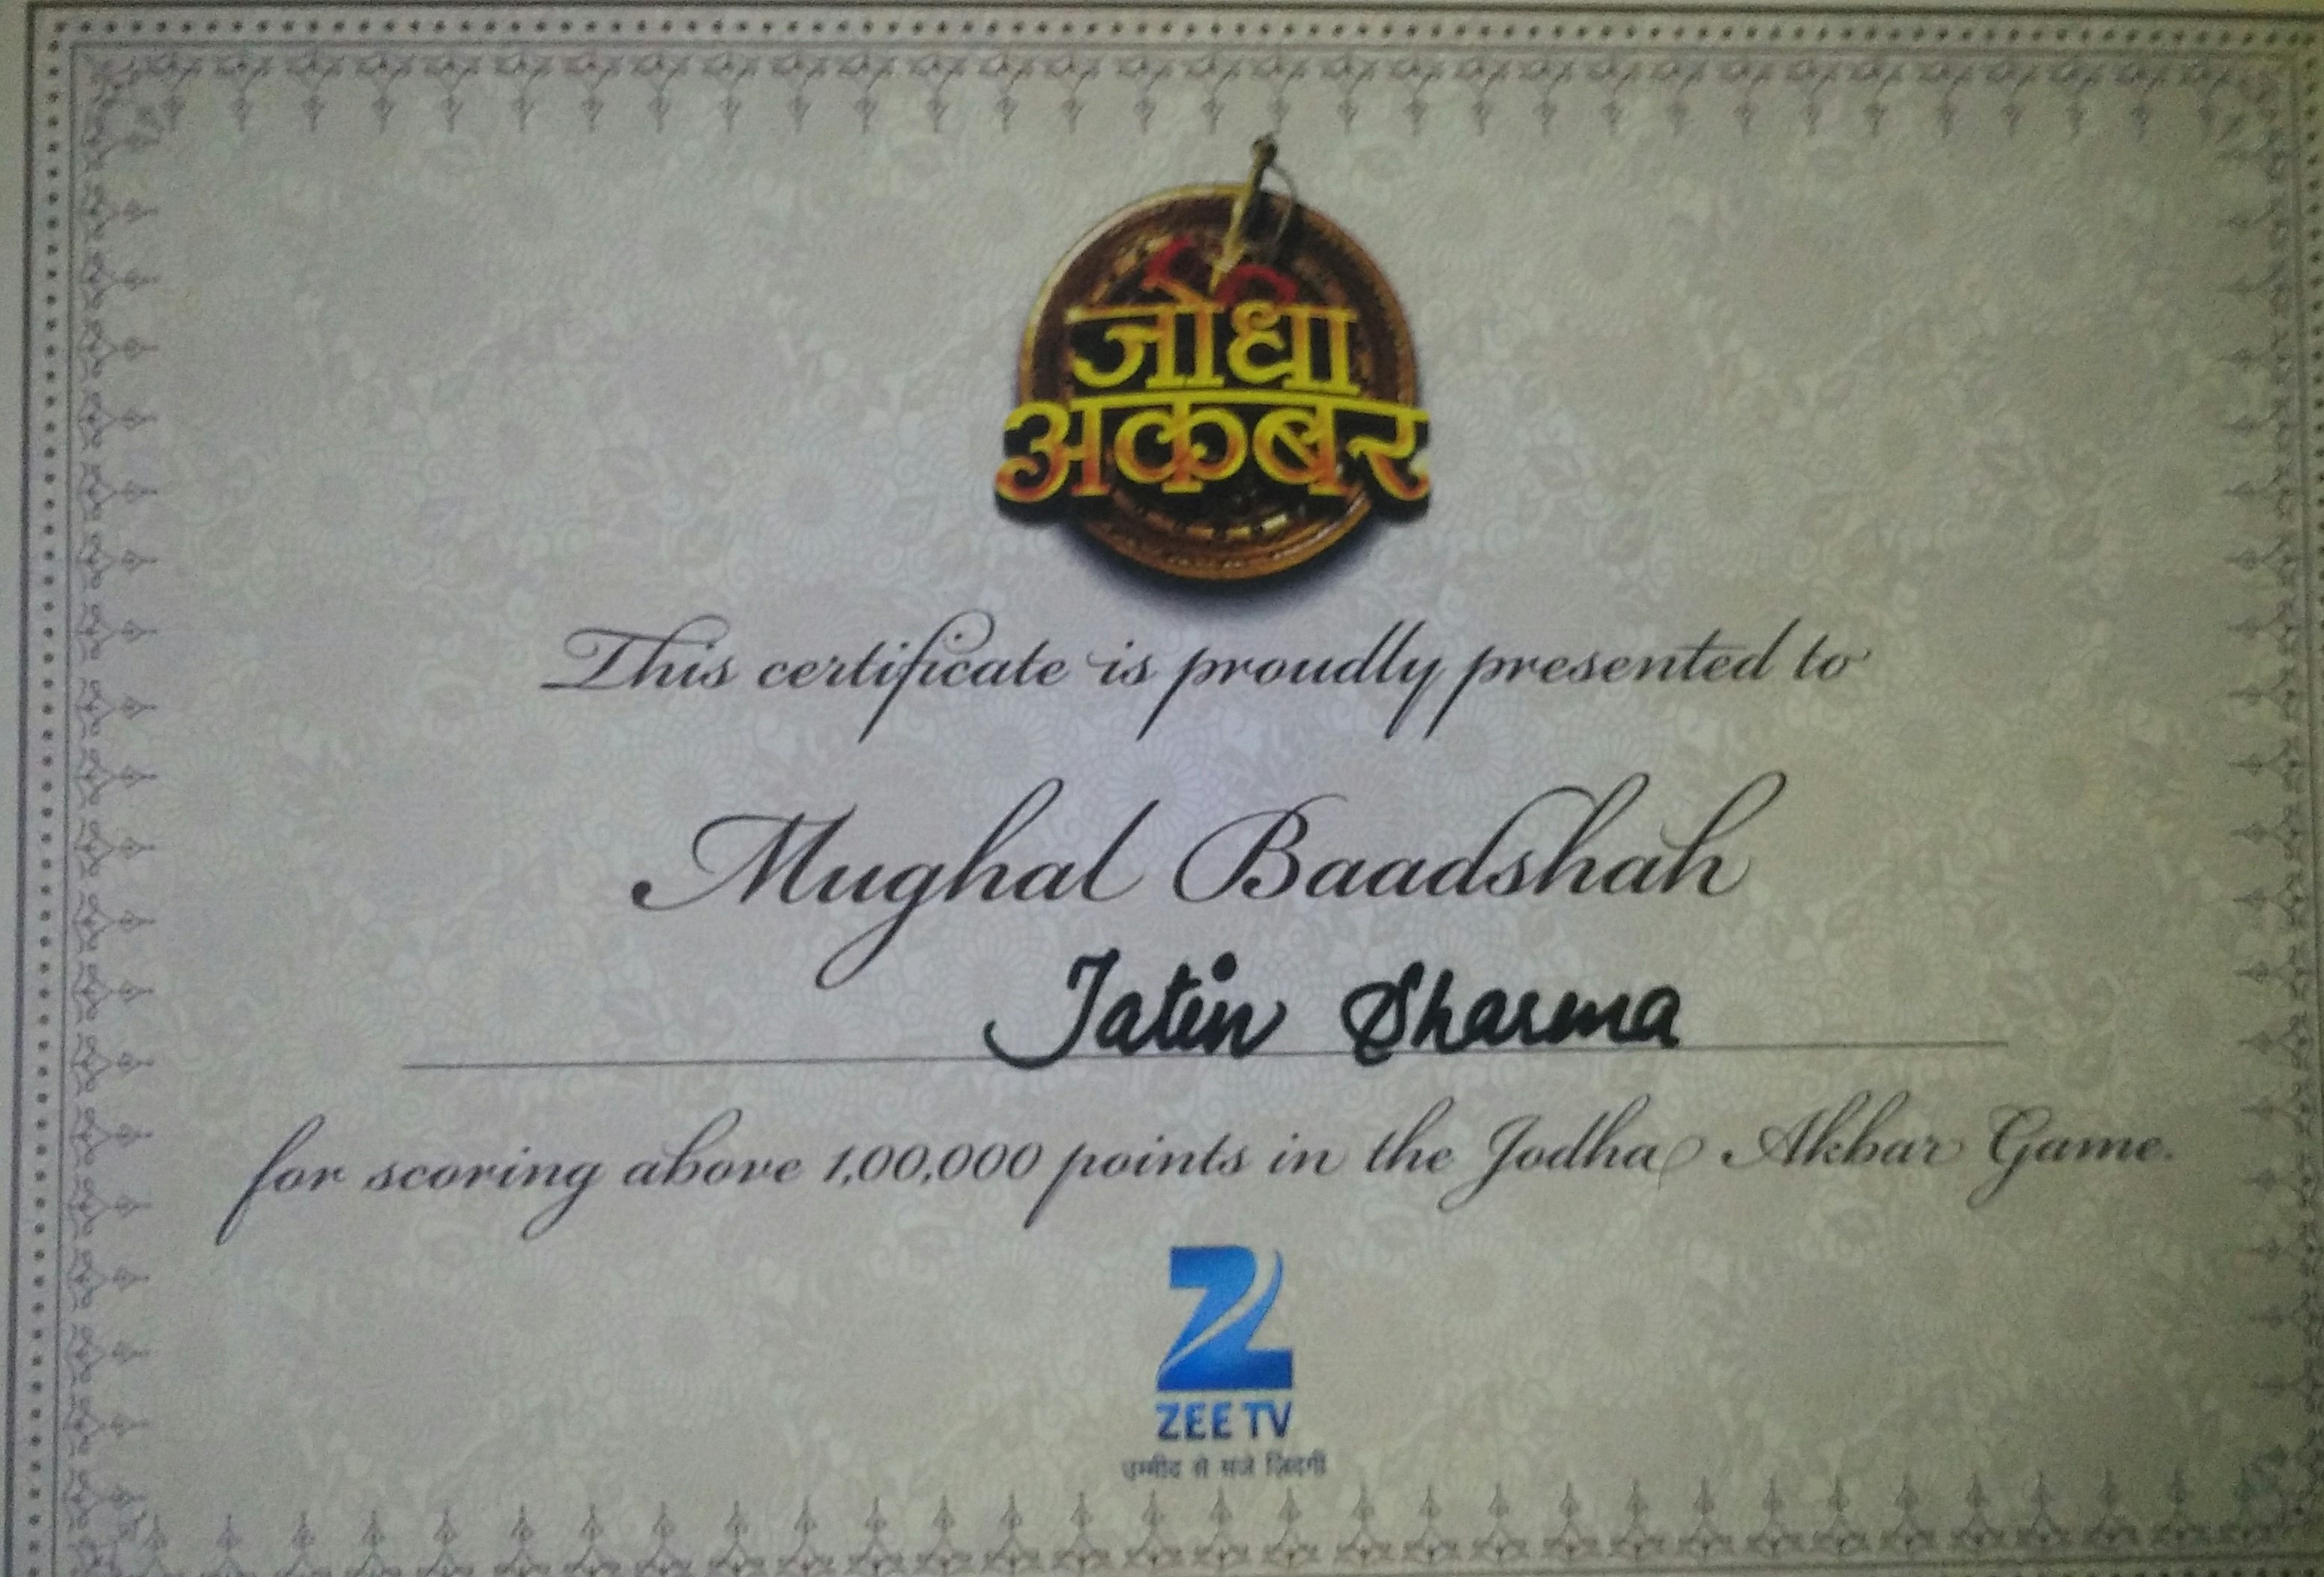 जोधा
अकबर
This certificate is proudly presented to
Mughal Baadshah
Jatin Sharma
for scoring above 1,00,000 points in the Jodha Akbar Game.
ZEE TV
उम्मीद से सजे ज़िंदगी